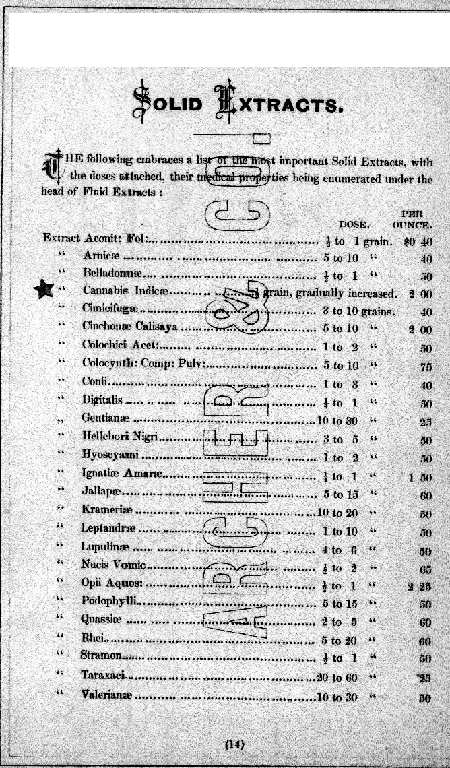 SOLID EXTRACTS.
THE following embraces a list of the most important Solid Extracts, with
the doses attached, their medical properties being enumerated under the
head of Fluid Extracts :
DOSE. PER OUNCE.
Extract Aconit: Fol: ½ to 1 grain. $0 40
“ Arnicæ 5 to 10 “ 40
“ Belladonnæ ½ to 1 “ 50
“ Cannabis Indicæ grain, gradually increased. 2 00
“ Cimicifugæ 3 to 10 grains. 40
“ Cinchonæ Calisaya 5 to 10 “ 2 00
“ Colochici Acet: 1 to 2 “ 50
“ Colocynth: Comp: Pulv: 5 to 10 “ 75
“ Conii 1 to 3 “ 40
“ Digitalis ½ to 1 “ 50
„ Gentianæ 10 to 30 “ 25
“ Hellebori Nigri 3 to 5 “ 50
“ Hyoscyami 1 to 2 “ 50
“ Ignatiæ Amaræ to 1 “ 1 50
“ Jallapæ 5 to 15 “ 60
“ Krameriæ 10 to 20 “ 50
“ Leptandræ 1 to 10 “ 50
“ Lupulinæ to “ 50
“ Nucis Vomic ½ to 2 “ 65
“ Opii Aquos: ½ to 1 “ 2 25
“ Podophylli 5 to 15 “ 50
“ Quassiæ 2 to 5 “ 60
“ Rhei 5 to 20 “ 60
“ Stramon ½ to 1 “ 50
“ Taraxaci 20 to 60 “ 25
“ Valerianæ 10 to 30 “ 50
(14)
ARCHER & CO.